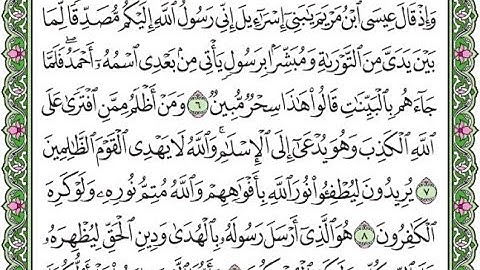 وَإِذْ قَالَ عِيسَى ٱبْنُ مَرْيَمَ يَٰبَنِىٓ إِسْرَٰٓءِيلَ إِنِّى رَسُولُ ٱللَّهِ إِلَيْكُم مُّصَدِّقًا لِّمَا
بَيْنَ يَدَىَّ مِنَ ٱلتَّوْرَىٰةِ وَمُبَشِّرًۢا بِرَسُولٍ يَأْتِى مِنۢ بَعْدِى ٱسْمُهُۥٓ أَحْمَدُ ۖ فَلَمَّا
جَآءَهُم بِٱلْبَيِّنَٰتِ قَالُوا۟ هَٰذَا سِحْرٌ مُّبِينٌ ٦ وَمَنْ أَظْلَمُ مِمَّنِ ٱفْتَرَىٰ عَلَى
ٱللَّهِ ٱلْكَذِبَ وَهُوَ يُدْعَىٰٓ إِلَى ٱلْإِسْلَٰمِ ۚ وَٱللَّهُ لَا يَهْدِى ٱلْقَوْمَ ٱلظَّٰلِمِينَ
٧ يُرِيدُونَ لِيُطْفِـُٔوا۟ نُورَ ٱللَّهِ بِأَفْوَٰهِهِمْ وَٱللَّهُ مُتِمُّ نُورِهِۦ وَلَوْ كَرِهَ
ٱلْكَٰفِرُونَ ٨ هُوَ ٱلَّذِىٓ أَرْسَلَ رَسُولَهُۥ بِٱلْهُدَىٰ وَدِينِ ٱلْحَقِّ لِيُظْهِرَهُۥ